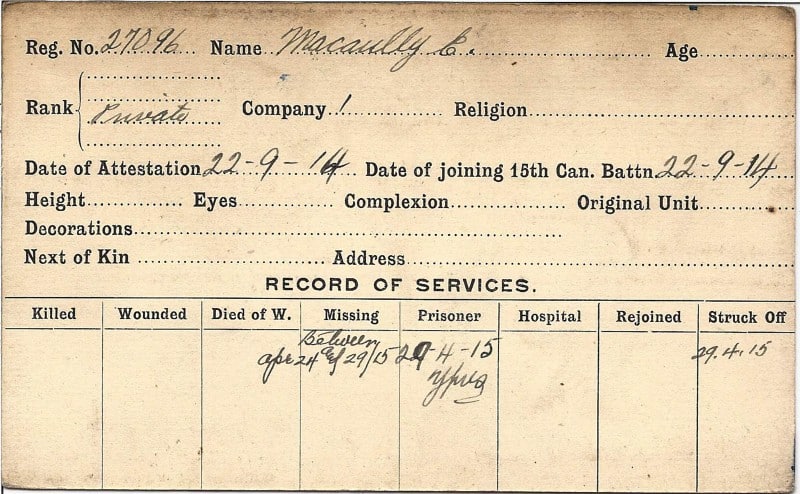 Reg. No. 27096 Name Macaully E. Age
Rank Private Company 1 Religion
Date of Attestation 22-9-14 Date of joining 15th Can. Battn. 22-9-14
Height Eyes Complexion Original Unit
Decorations
Next of Kin Address
RECORD OF SERVICES.
Killed Wounded Died of W. Missing Prisoner Hospital Rejoined Struck Off
Between
apr 24 & 29/15 29-4-15 29.4.15
Ypres